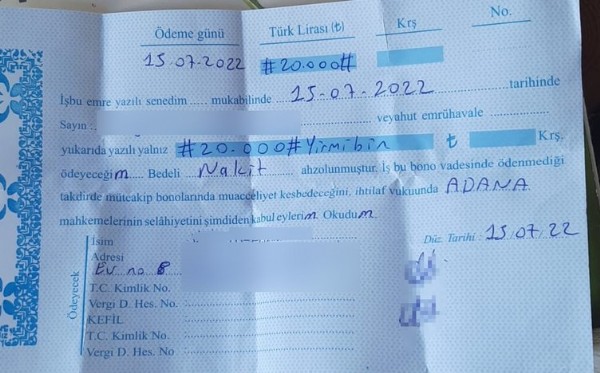 Ödeme günü Türk Lirası (₺) Krş No.
15.07.2022 #20.000#
İşbu emre yazılı senedim ..... mukabilinde ... 15.07.2022 ... tarihinde
Sayın : veyahut emrühavale
yukarıda yazılı yalnız #20.000#Yirmibin ₺ Krş.
ödeyeceğim. Bedeli Nakit ahzolunmuştur. İş bu bono vadesinde ödenmediği
takdirde müteakip bonolarında muacceliyet kesbedeceğini, ihtilaf vukuunda ADANA
mahkemelerinin selâhiyetini şimdiden kabul eylerim. Okudum.
İsim
Düz. Tarihi : 15.07.22
Adresi
Ev no 8
Ödeyecek
T.C. Kimlik No.
Vergi D. Hes. No.
KEFİL
T.C. Kimlik No.
Vergi D. Hes. No